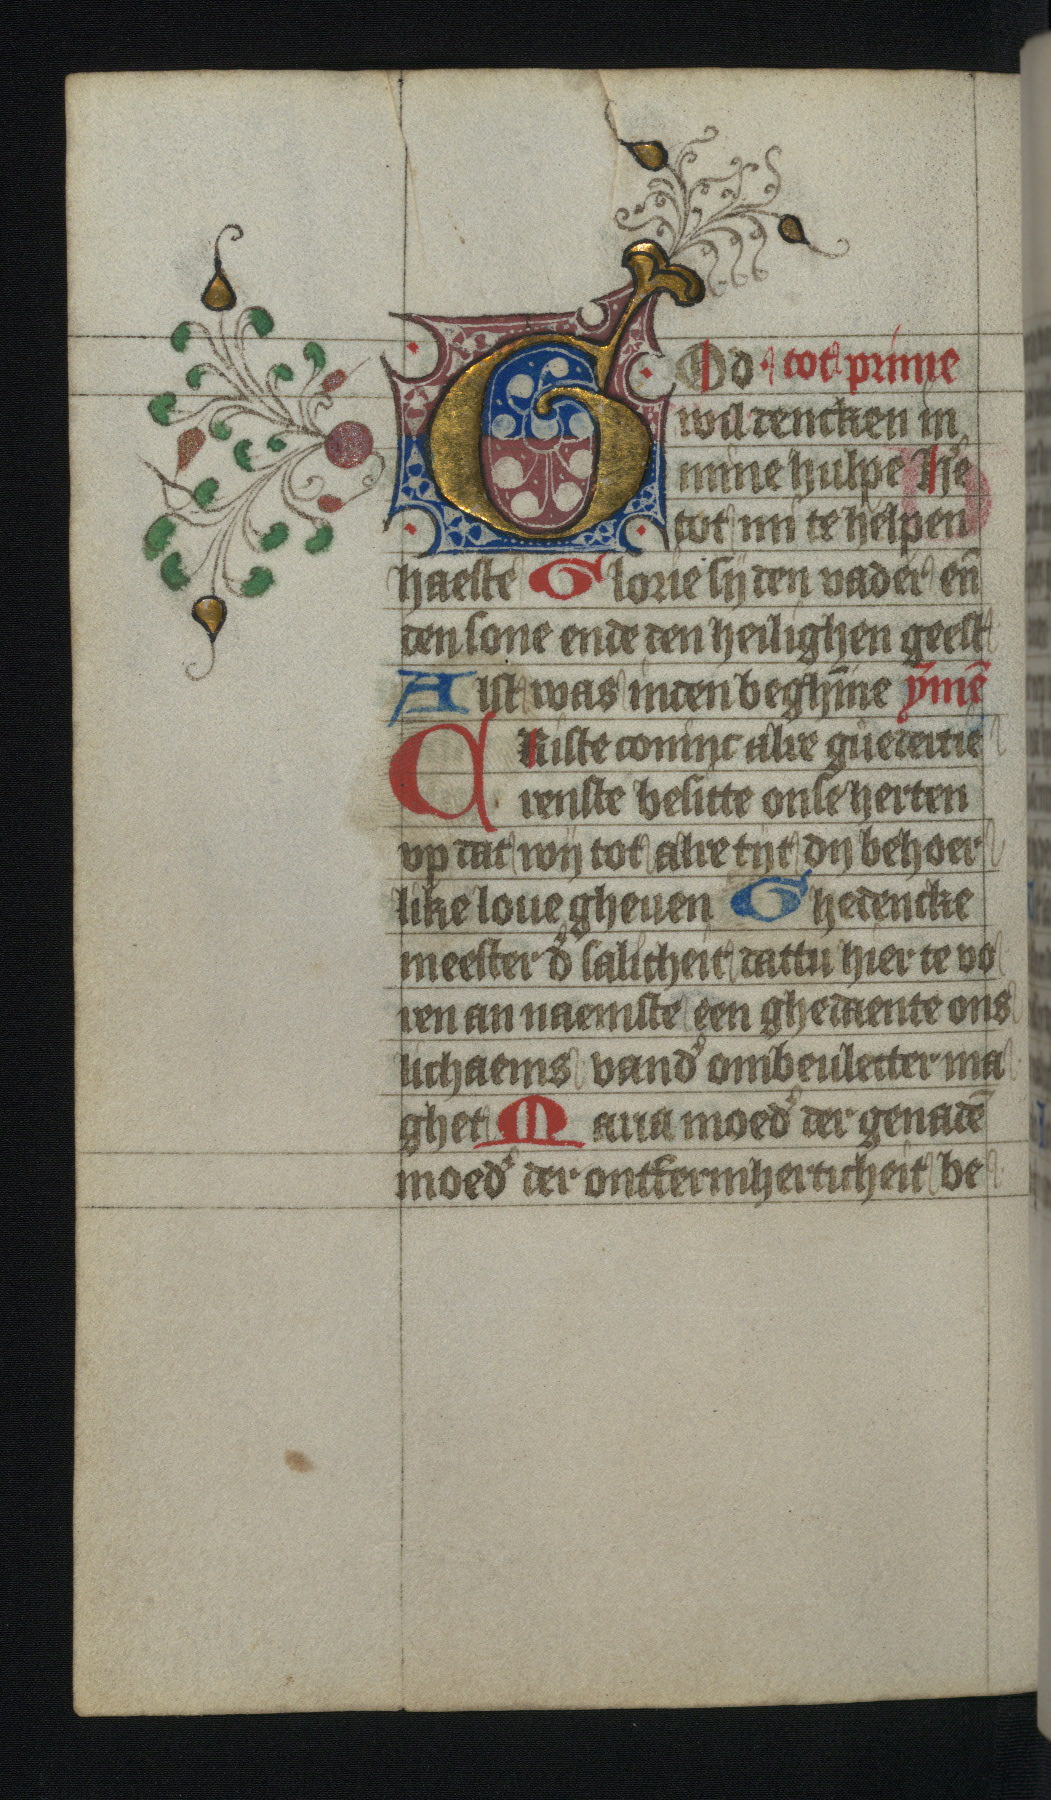 God · tot prime
wil dencken in
mine hulpe Ihe
tot mi te helpen
haeste Glorie sij den vader en̄
den sone ende den heilighen geest
Alst was inden beghīne ȳmē
Criste coninc alre güedertie
renste besitte onse herten
vp dat wij tot alre tijt dij behoer
like loue gheuen Ghedencke
meester d' salicheit dattu hier te vo
ren an naemste een ghedaente ons
lichaems vand' ombeulecter ma
ghet Maria moed' der genadē
moed' der ontfermherticheit be